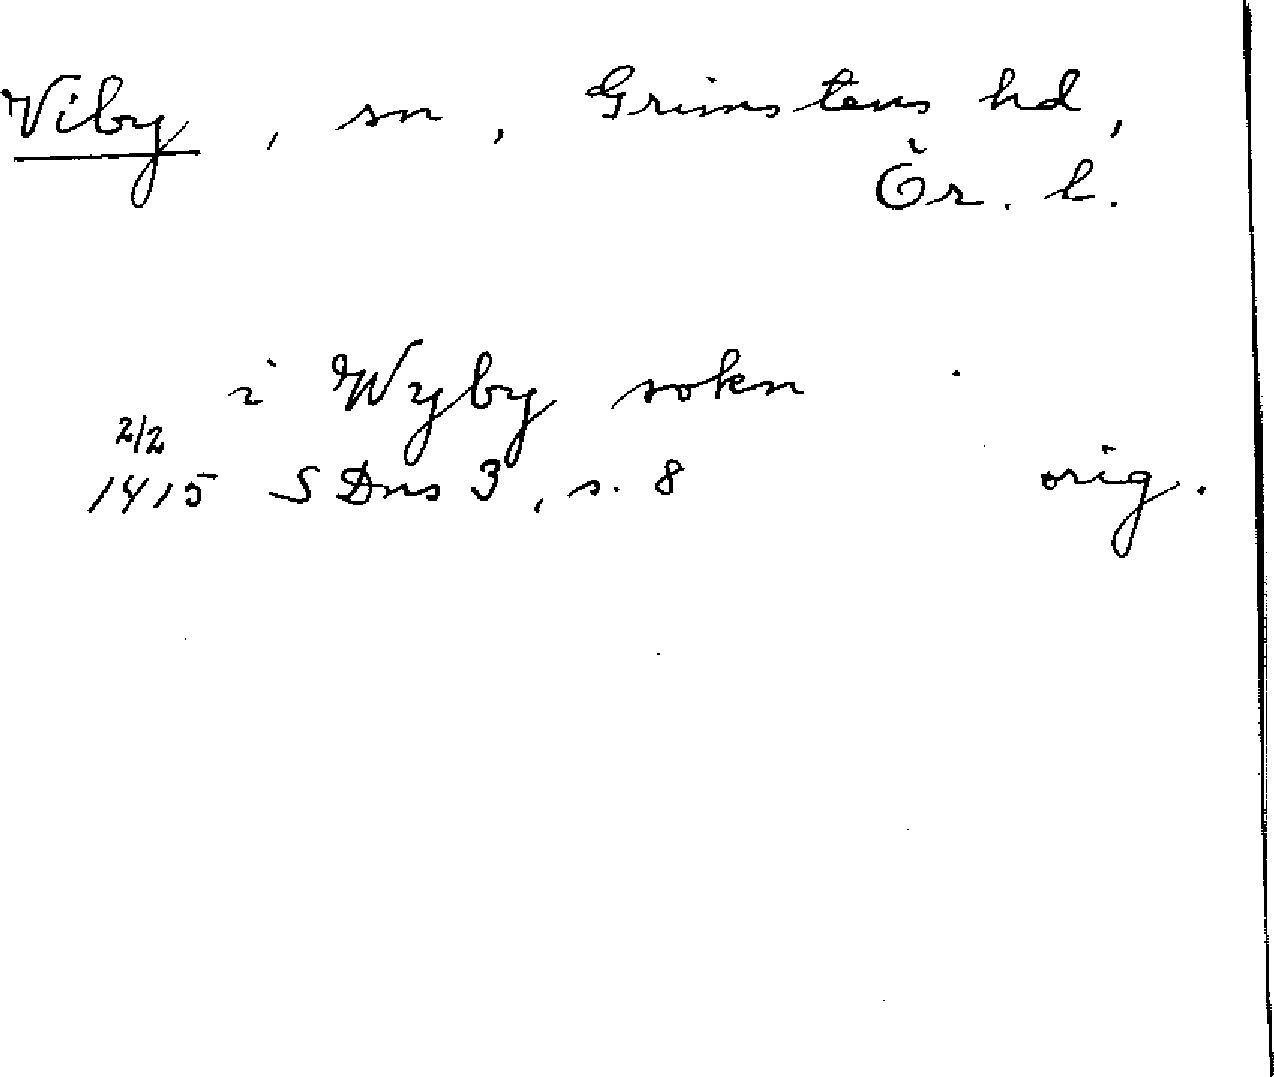 Viby, sn, Grimstens hd,
Ör. l.
i Wyby sokn
2/2
1415 SDns 3, s. 8 orig.